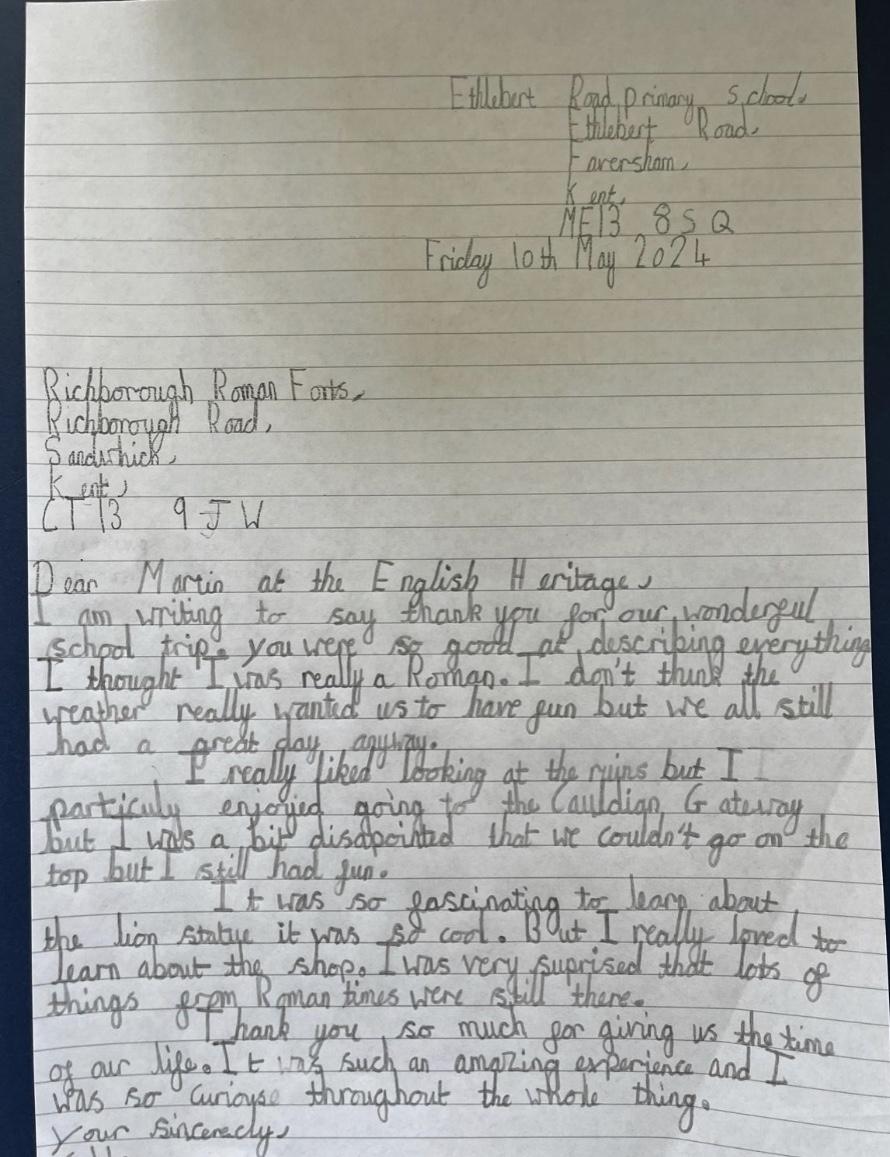 Ethlebert Road primary School,
Ethlebert Road,
Faversham,
Kent,
ME13 8SQ
Friday 10th May 2024
Richborough Roman Forts,
Richborough Road,
Sandwhick,
Kent,
CT13 9JW
Dear Martin at the English Heritage,
I am writing to say thank you for our wonderful
school trip. you were so good at describing everything
I thought I was really a Roman. I don't think the
weather really wanted us to have fun but we all still
had a great day anyway.
I really liked looking at the ruins but I
particuly enjoyed going to the Cauldian Gateway
but I was a bit disapointed that we couldn't go on the
top but I still had fun.
It was so fascinating to learn about
the lion statue it was so cool. But I really loved to
learn about the shop. I was very suprised that lots of
things from Roman times were still there.
Thank you so much for giving us the time
of our life. It was such an amazing experience and I
was so curiouse throughout the whole thing.
your sincerely,